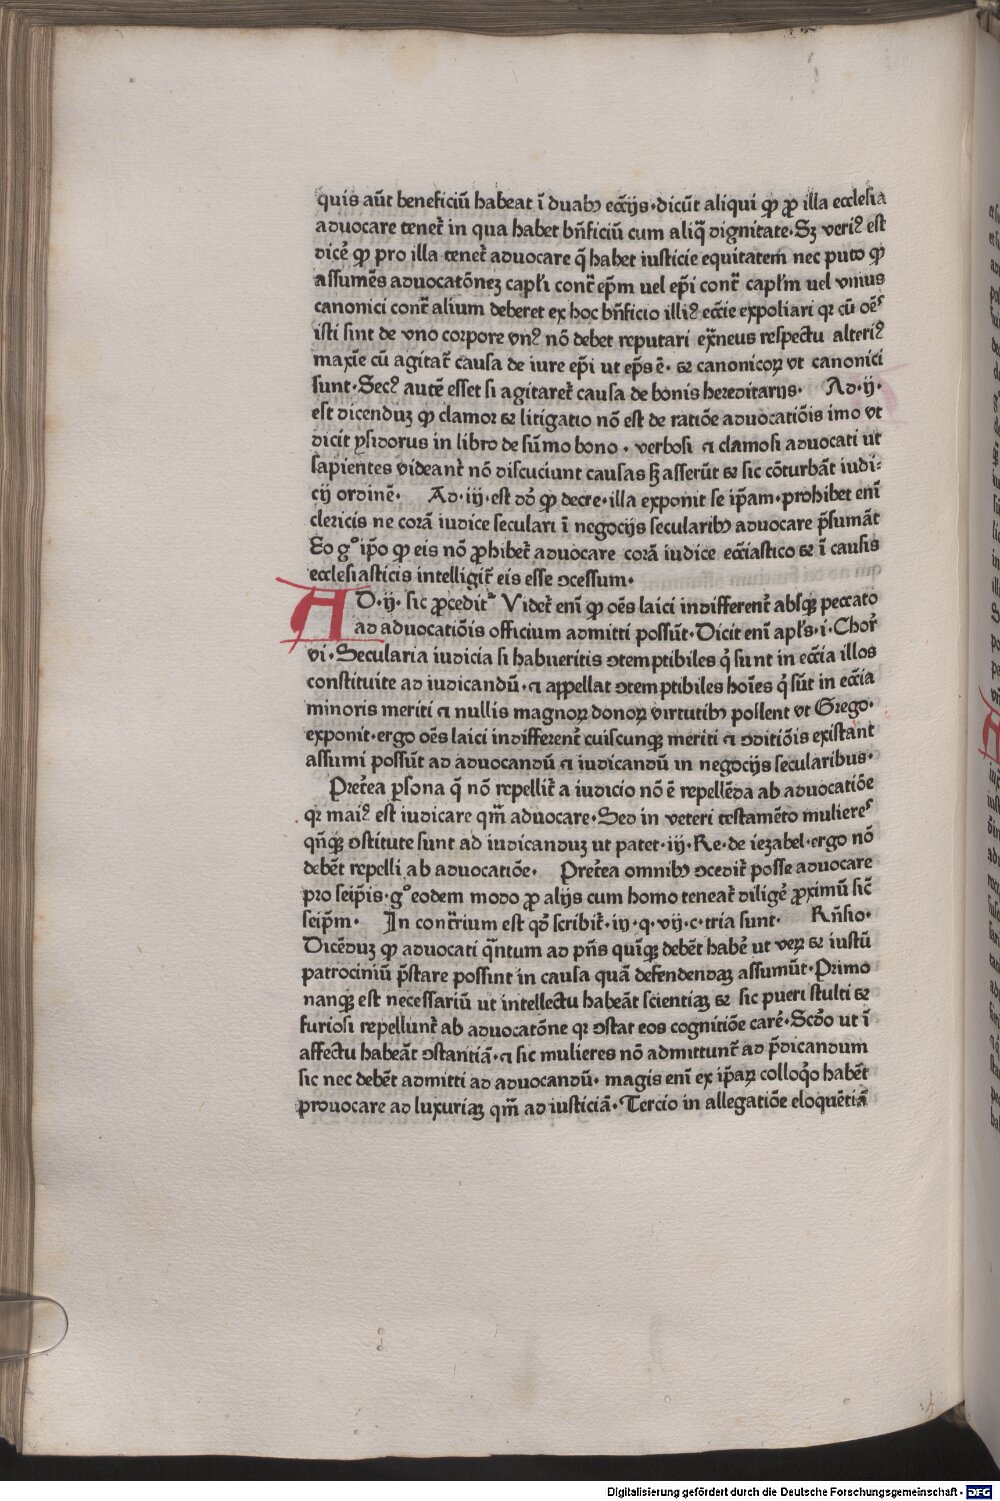 quis aūt beneficiū habeat ī duabꝫ ecc̄ijs·dicūt aliqui ꝙ ꝓ illa ecclesia
aduocare tenet᷑ in qua habet bn̄ficiū cum aliq̄ dignitate·Sꝫ veriꝰ est
dice᷑ ꝙ pro illa tenet᷑ aduocare q̄ habet iusticie equitatem nec puto ꝙ
assumēs aduocatōneꝫ capłi cont᷑ ep̄m uel ep̄i cont᷑ capłm uel vnius
canonici cont᷑ alium deberet ex hoc bn̄ficio illiꝰ ecc̄ie expoliari qꝛ cū oēs
isti sint de vno corpore vnꝰ nō debet reputari ext᷑neus respectu alteriꝰ
maxīe cū agitat᷑ causa de iure ep̄i ut ep̄s ē· ⁊ canonicoꝝ vt canonici
sunt·Secꝰ autē esset si agitaret᷑ causa de bonis hereditarijs· Ad·ij·
est dicenduꝫ ꝙ clamor ⁊ litigatio nō est de ratiōe aduocatiōis imo vt
dicit ysidorus in libro de sūmo bono · verbosi ⁊ clamosi aduocati ut
sapientes videant᷑ nō discuciunt causas sꝫ asserūt ⁊ sic cōturbāt iudi⸗
cij ordinē· Ad·iij·est dō ꝙ decre·illa exponit se ip̄am·prohibet enī
clericis ne corā iudice seculari ī negocijs secularibꝫ aduocare p̄sumāt
Eo gͦ ip̄o ꝙ eis nō ꝓhibet᷑ aduocare corā iudice ecc̄iastico ⁊ ī causis
ecclesiasticis intelligit᷑ eis esse ꝯcessum·
AD·ij·sic ꝓcedit᷑ Videt᷑ enī ꝙ oēs laici indifferent᷑ absqꝫ peccato
ad aduocatiōis officium admitti possūt·Dicit enī apłs·i·Chor᷑
vi·Secularia iudicia si habueritis ꝯtemptibiles q̇ sunt in ecc̄ia illos
constituite ad iudicandū·⁊ appellat ꝯtemptibiles hoīes q̇ sūt in ecc̄ia
minoris meriti ⁊ nullis magnoꝝ donoꝝ virtutibꝫ pollent vt Grego·
exponit·ergo oēs laici indifferent᷑ cuiscunqꝫ meriti ⁊ ꝯditiōis existant
assumi possūt ad aduocandū ⁊ iudicandū in negocijs secularibus·
Pret᷑ea ꝑsona q̄ nō repellit᷑ a iudicio nō ē repellēda ab aduocatiōe
qꝛ maiꝰ est iudicare qm̄ aduocare·Sed in veteri testamēto mulieres
qn̄qꝫ ꝯstitute sunt ad iudicanduꝫ ut patet·iij·Re·de iezabel·ergo nō
debēt repelli ab aduocatiōe· Pret᷑ea omnibꝫ ꝯcedit᷑ posse aduocare
pro seip̄is·gͦ eodem modo ꝓ alijs cum homo teneat᷑ dilige᷑ ꝓximū sic̄
seip̄m· In cont᷑rium est qd̄ scribit᷑·iij·q·vij·c·tria sunt· Rn̄sio·
Dicēduꝫ ꝙ aduocati q̄ntum ad pn̄s quīqꝫ debēt habe᷑ ut veꝝ ⁊ iustū
patrociniū p̄stare possint in causa quā defendendaꝫ assumūt·Primo
nanqꝫ est necessariū ut intellectu habeāt scientiaꝫ ⁊ sic pueri stulti ⁊
furiosi repellunt᷑ ab aduocatōne qꝛ ꝯstat eos cognitiōe care᷑·Scdo ut ī
affectu habeāt ꝯstantiā·⁊ sic mulieres nō admittunt᷑ ad p̄dicandum
sic nec debēt admitti ad aduocandū· magis enī ex ip̄aꝝ colloq̇o habēt
prouocare ad luxuriaꝫ qm̄ ad iusticiā·Tercio in allegatiōe eloquētiā
Digitalisierung gefördert durch die Deutsche Forschungsgemeinschaft - DFG